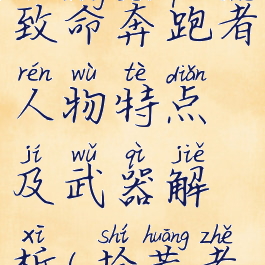 致命奔跑者
rén wù tè diǎn
人物特点
jí wǔ qì jiě
及武器解
xī shí huāng zhě
析(拾荒者